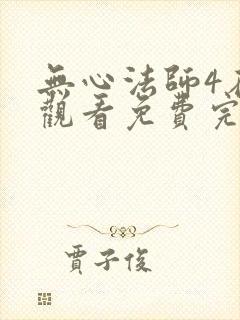 無心法師4
觀看免費完
賈子俊